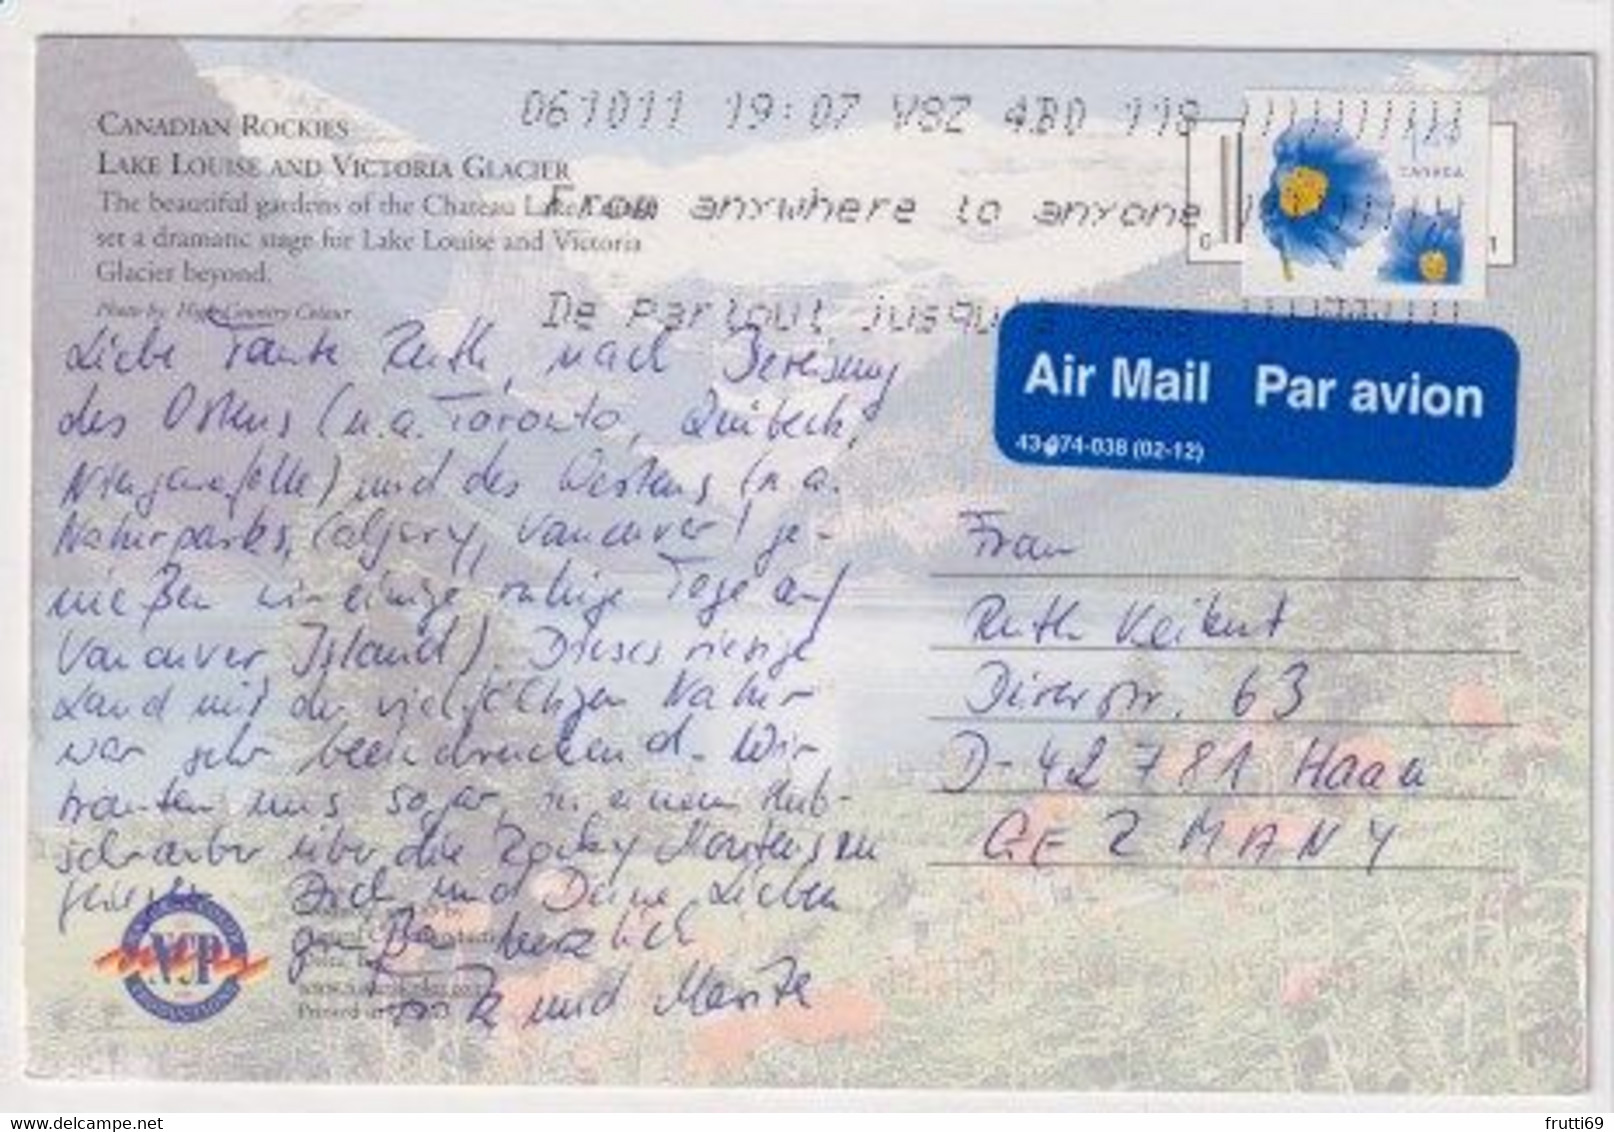 061011 19:07 V8Z 4B0 118
CANADIAN ROCKIES
LAKE LOUISE AND VICTORIA GLACIER
The beautiful gardens of the Chateau Lake
set a dramatic stage for Lake Louise and Victoria
Glacier beyond.
Photo by: High Country Colour
From anywhere to anyone
De partout jusqu'à
CANADA
0
1
Air Mail Par avion
43-074-038 (02-12)
Liebe Tante Ruth, nach Bereisung
des Ostens (u.a. Toronto, Quebeck,
Niagarafälle) und des Westens (u.a.
Naturparks, Calgary, Vancouver) ge-
nießen wir einige ruhige Tage auf
Vancouver Island). Dieses riesige
Land mit der vielfältigen Natur
war sehr beeindruckend. Wir
trauten uns sogar, in einem Hub-
schrauber über die Rocky Mountains zu
Dich und Deine Lieben
grüßen herzlich
und
Frau
Ruth
63
D-42781 Haan
GERMANY
NCP
PRODUCTIONS
Printed in
frutti69